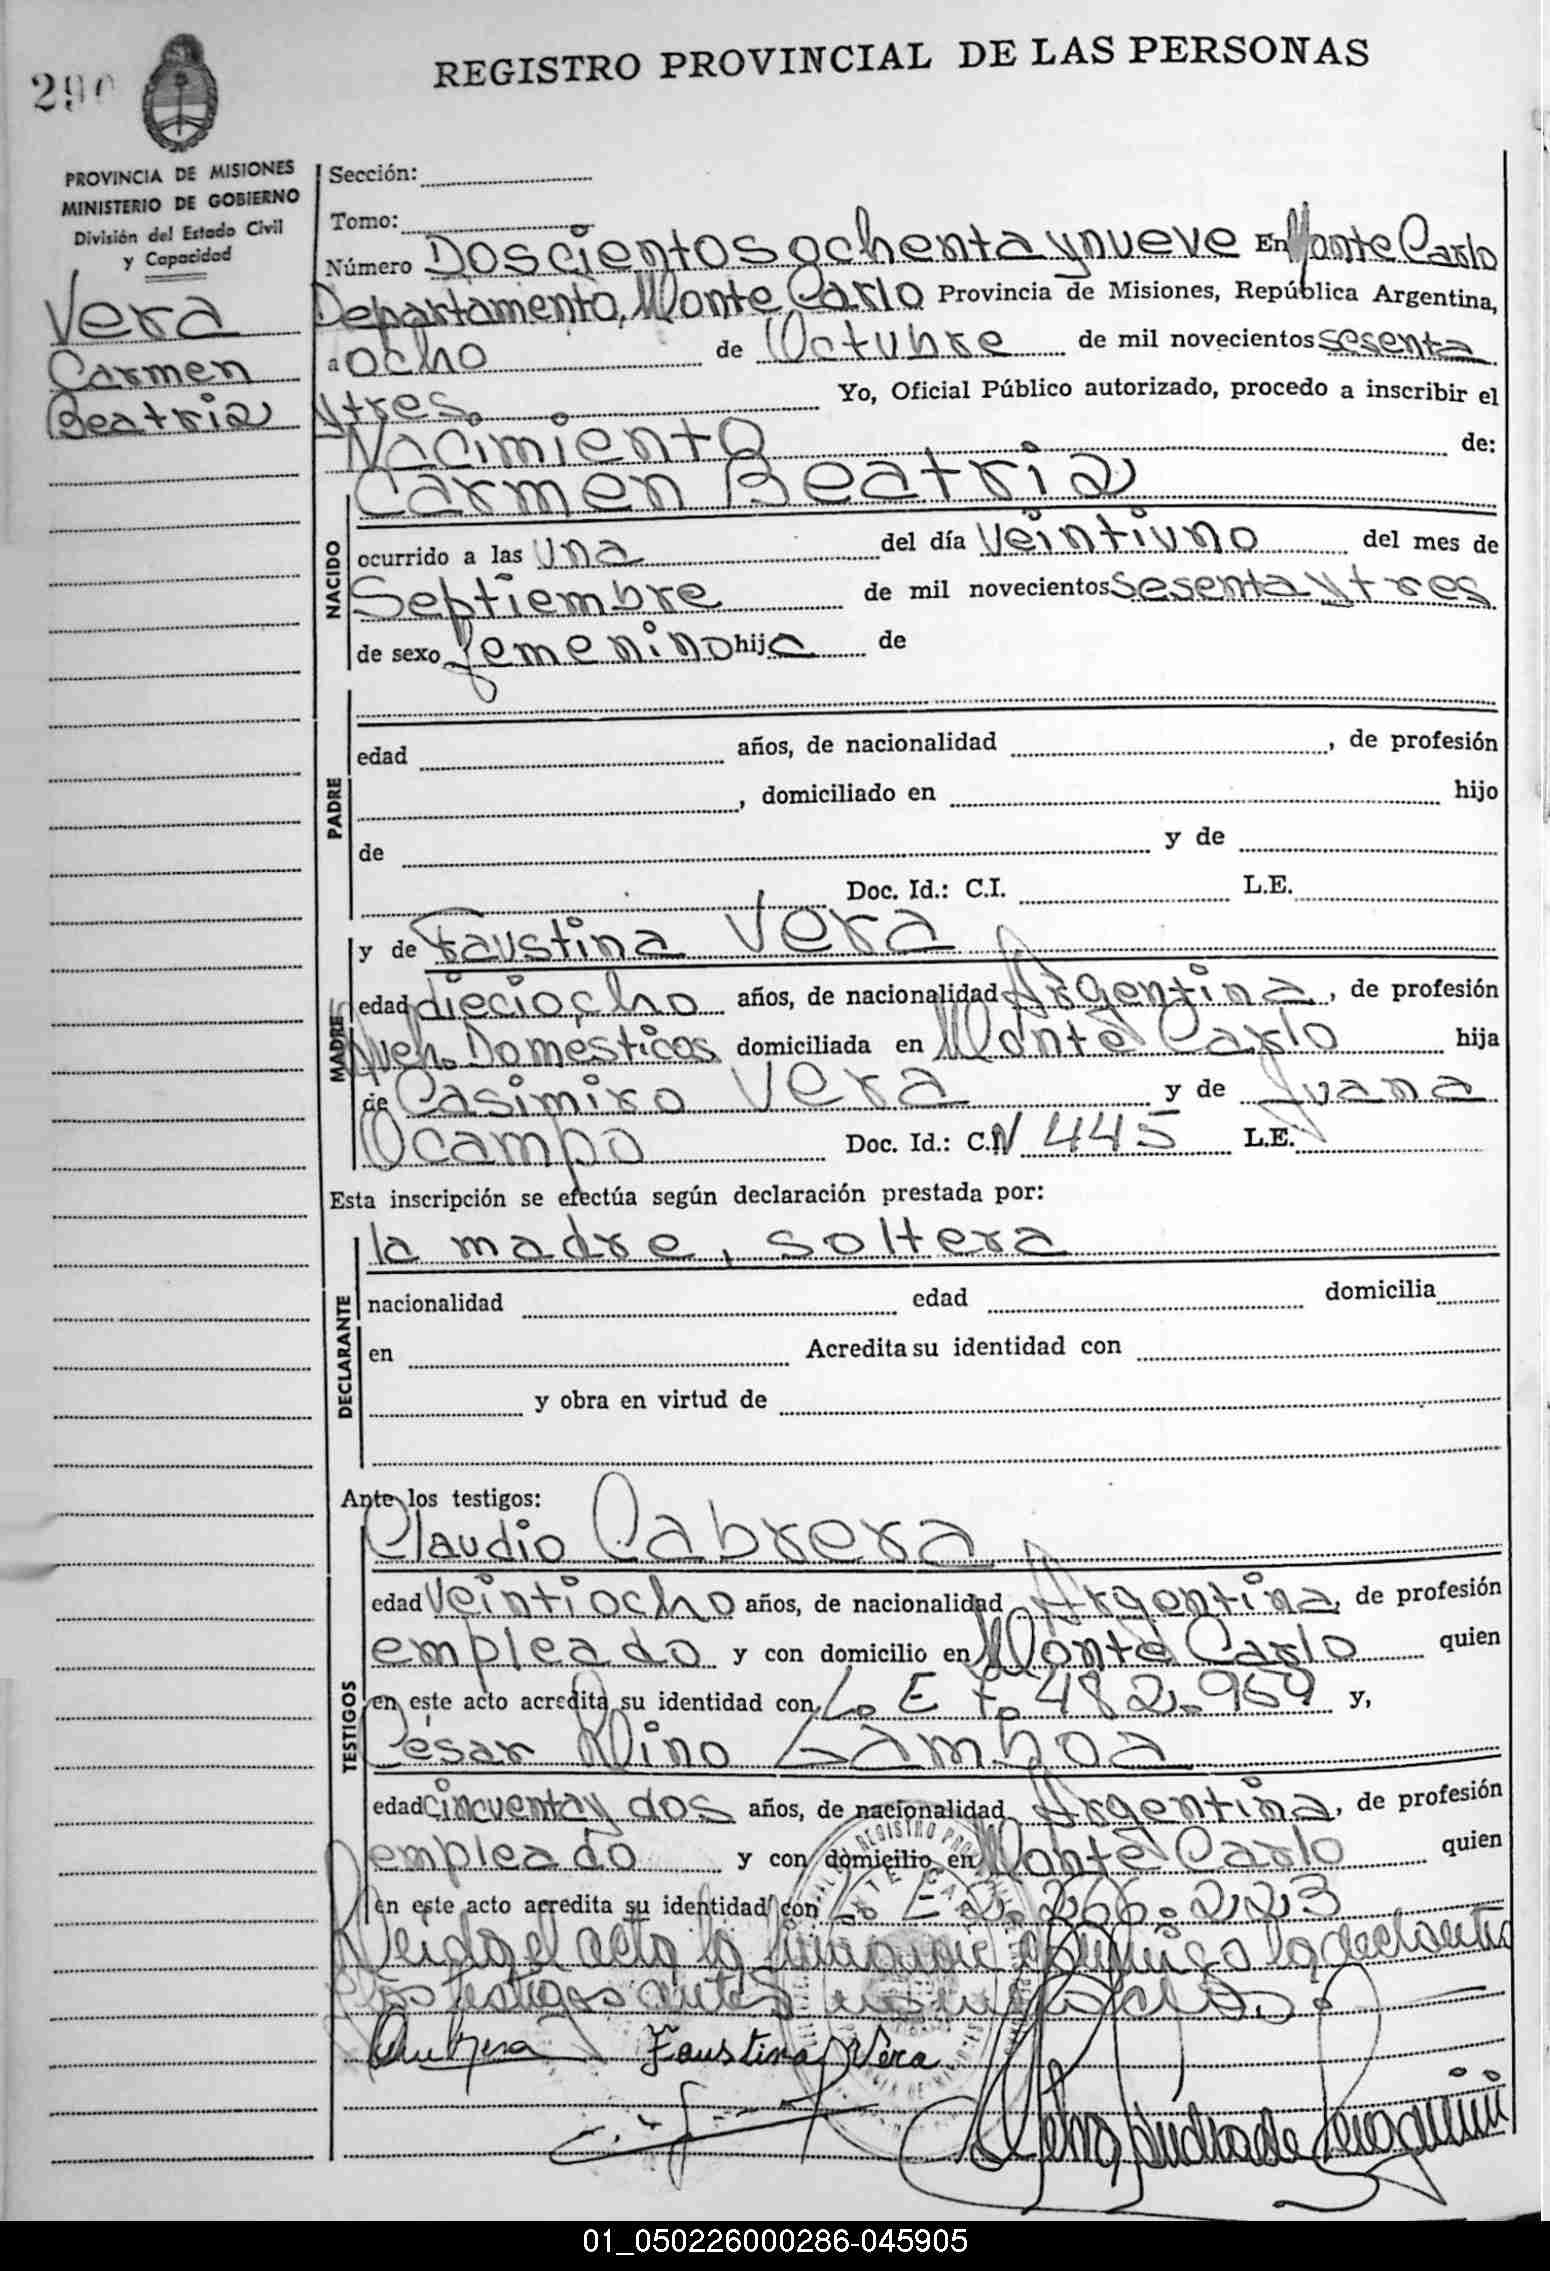 REGISTRO PROVINCIAL DE LAS PERSONAS
290
PROVINCIA DE MISIONES
MINISTERIO DE GOBIERNO
División del Estado Civil
y Capacidad
Vera
Carmen
Beatriz
Sección:
Tomo:
Número Doscientos ochenta y nueve En Monte Carlo
Departamento, Monte Carlo Provincia de Misiones, República Argentina,
a ocho de Octubre de mil novecientos sesenta
y tres. Yo, Oficial Público autorizado, procedo a inscribir el
Nacimiento de:
Carmen Beatriz
NACIDO
ocurrido a las una del día veintiuno del mes de
Septiembre de mil novecientos sesenta y tres
de sexo femenino hija de
PADRE
edad años, de nacionalidad , de profesión
, domiciliado en hijo
de y de
Doc. Id.: C.I. L.E.
MADRE
y de Faustina Vera
edad dieciocho años, de nacionalidad Argentina, de profesión
Queh. Domesticos domiciliada en Monte Carlo hija
de Casimiro Vera y de Juana
Ocampo Doc. Id.: C.N 445 L.E.
Esta inscripción se efectúa según declaración prestada por:
DECLARANTE
la madre, soltera
nacionalidad edad domicilia
en Acredita su identidad con
y obra en virtud de
Ante los testigos:
TESTIGOS
Claudio Cabrera
edad veintiocho años, de nacionalidad Argentina, de profesión
empleado y con domicilio en Monte Carlo quien
en este acto acredita su identidad con L. E 7. 482.959 y,
César Dino Gamboa
edad cincuenta y dos años, de nacionalidad Argentina, de profesión
empleado y con domicilio en Monte Carlo quien
en este acto acredita su identidad con L. E 2. 266.223
Leida el acta la firmaron conmigo la declarante
y los testigos antes
Faustina Vera
01_050226000286-045905